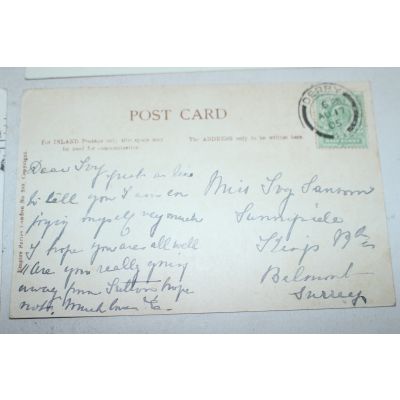 POST CARD
For INLAND Postage only, this space may
be used for communication.
The ADDRESS only to be written here.
DERBY
AU 17
05
HALF PENNY
Dear Ivy just a line
to tell you I am en
joying myself very much
I hope you are all well
Are you really going
away from Sutton hope
not. Much love
Miss Ivy Sansom
Sunnyside
Belmont
Surrey